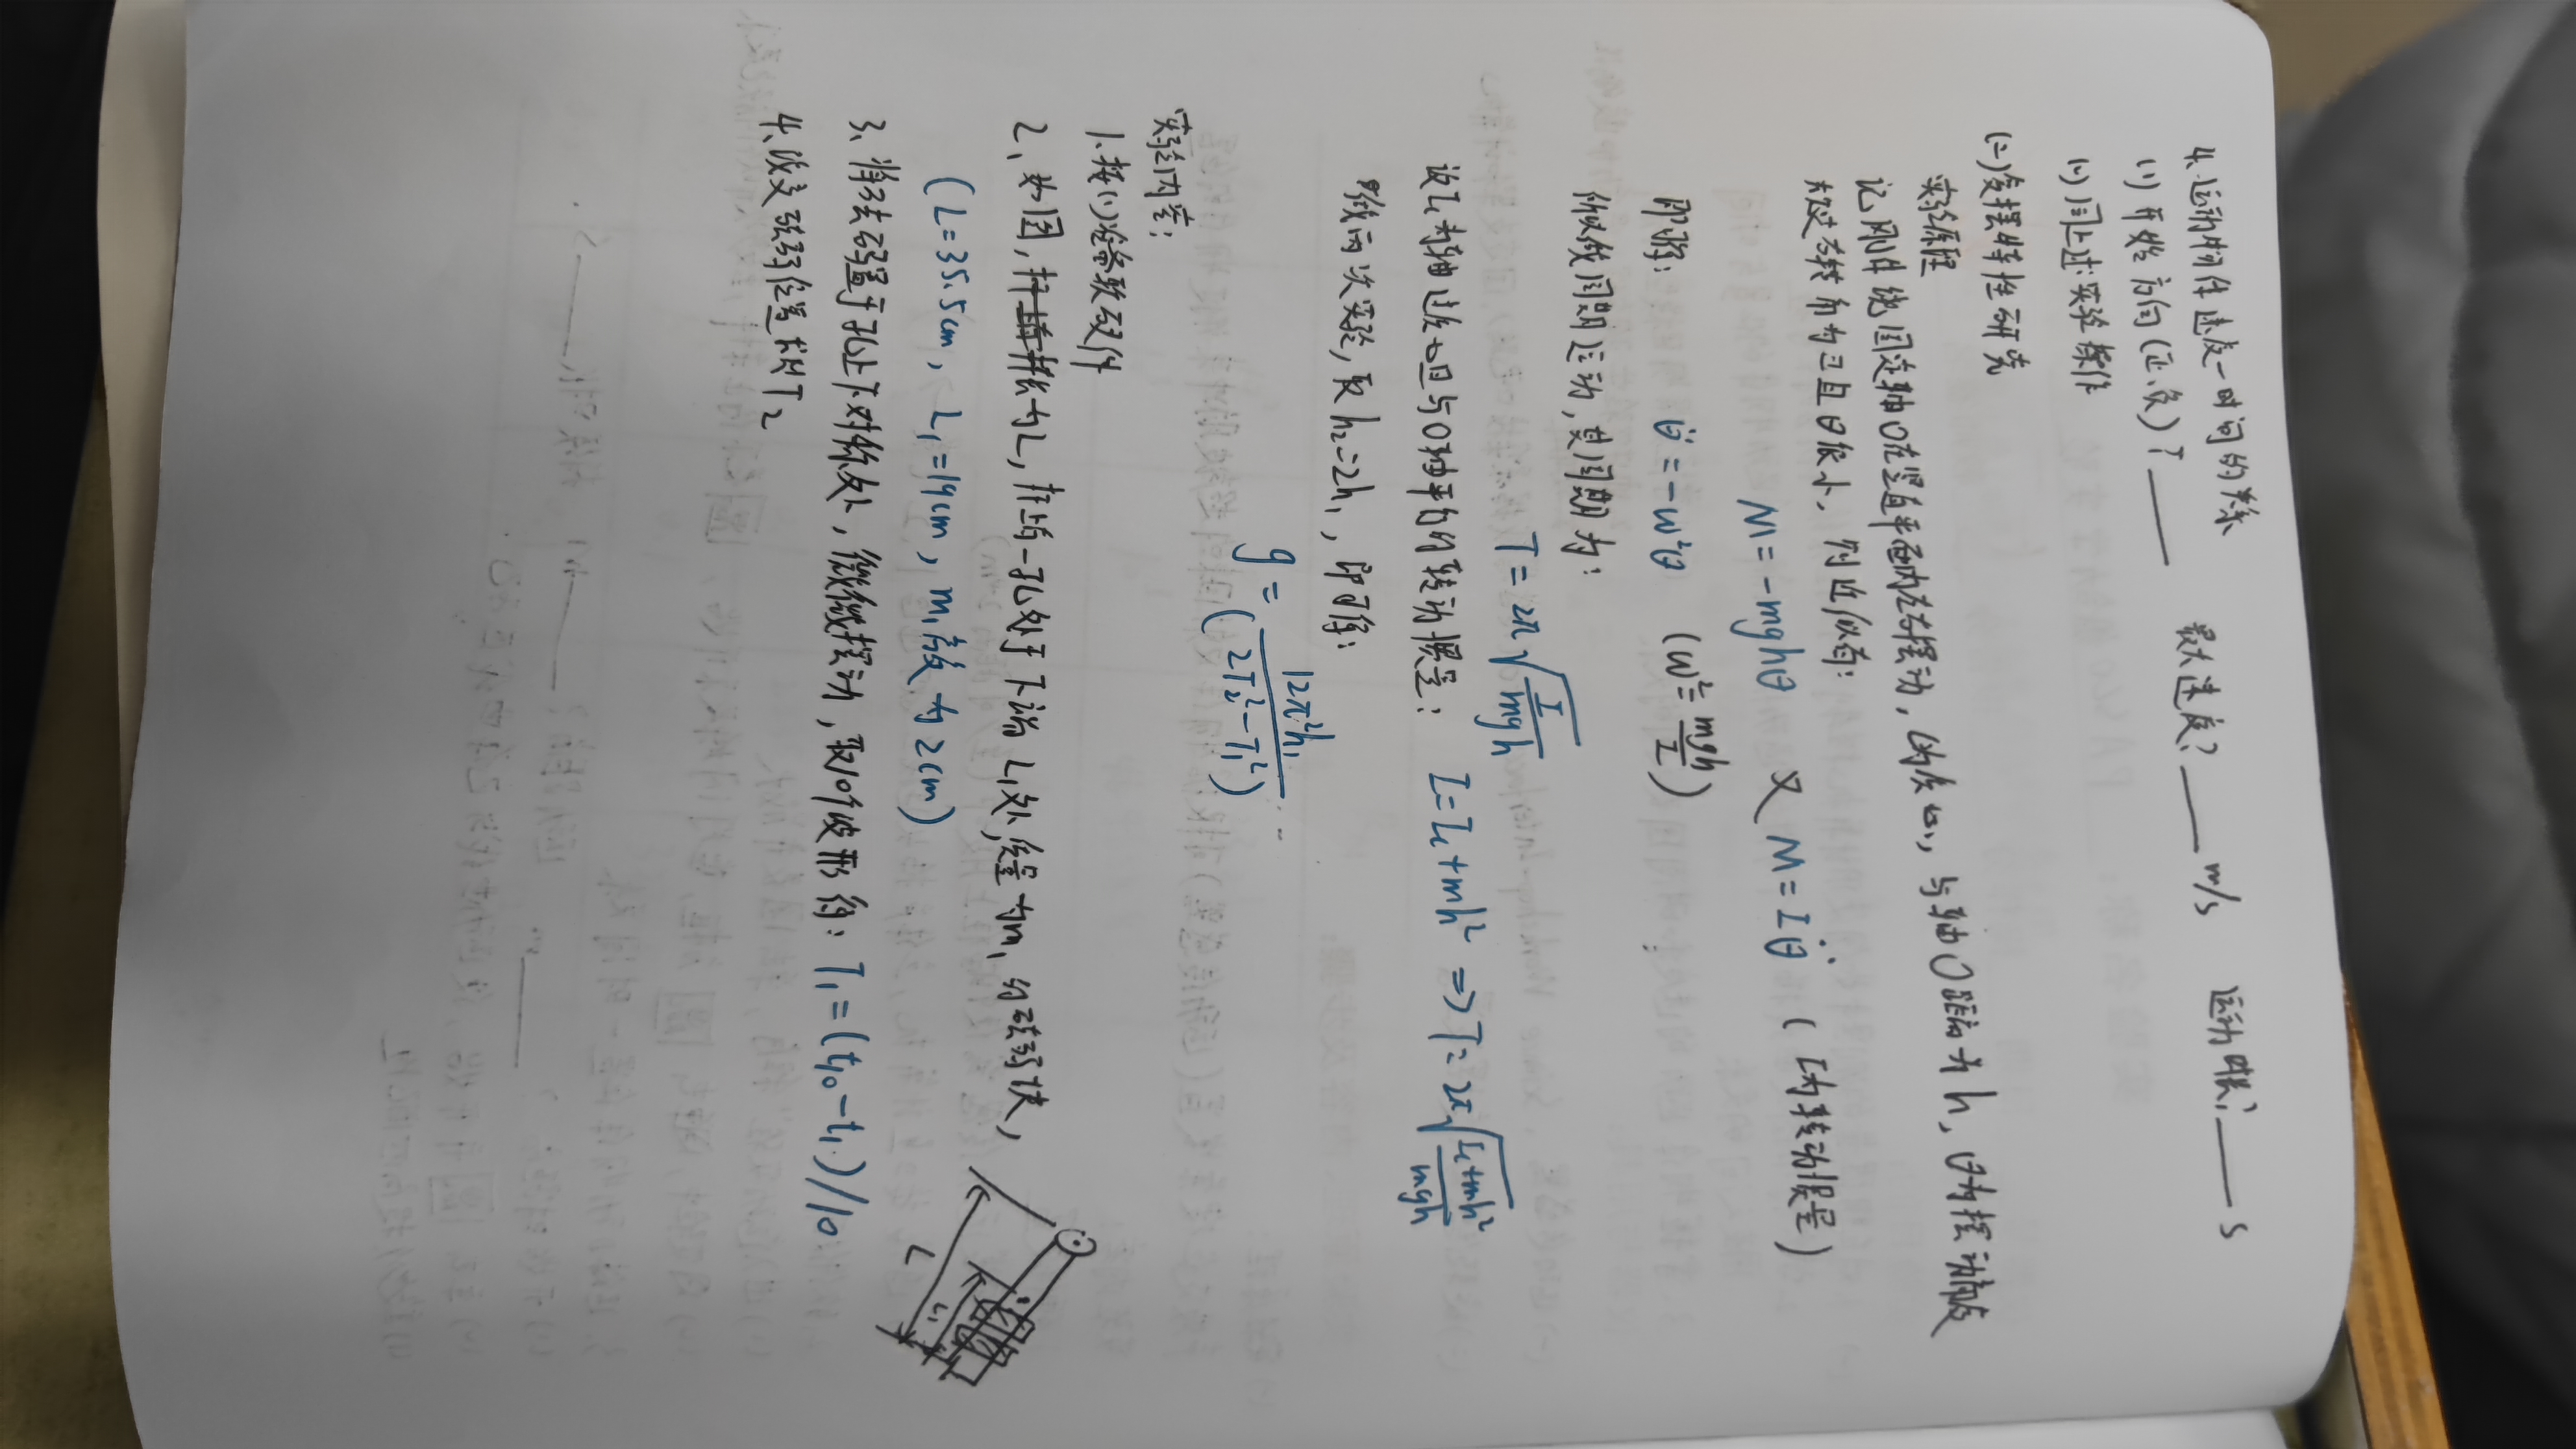 4.运动物体速度—时间的关系
(1)开始方向(正、负)?____ 最大速度?____m/s 运动时长?____s
(2)同上述实验操作
(二)复摆特性研究
实验原理
记刚体绕固定轴O在竖直平面内左右摆动,C为质心,与轴O距离为h,θ为摆动角度
规定右转角为正且θ很小,则近似有:
M=-mghθ 又M=Iθ̈ (I为转动惯量)
即得: θ̈=-ω²θ (ω²=mgh/I)
做似周期运动,其周期为:
T=2π√(I/mgh)
设Ic为轴过质心且与O轴平行的转动惯量: I=Ic+mh² => T=2π√((Ic+mh²)/mgh)
做两次实验,取h₂=2h₁,即可得:
g=12π²h₁/(2T₂²-T₁²)
实验内容:
1.按(1)准备软硬件
2、如图,杆长为L,在一孔处于下端L₁处,质量为m,
(L=35.5cm,L₁=19cm,m₁高度为2cm)
3、将砝码置于孔上下对称处,微微摆动,取10个波形得:T₁=(t₁₀-t₁)/10
4、改变砝码位置求T₂
L
L₁